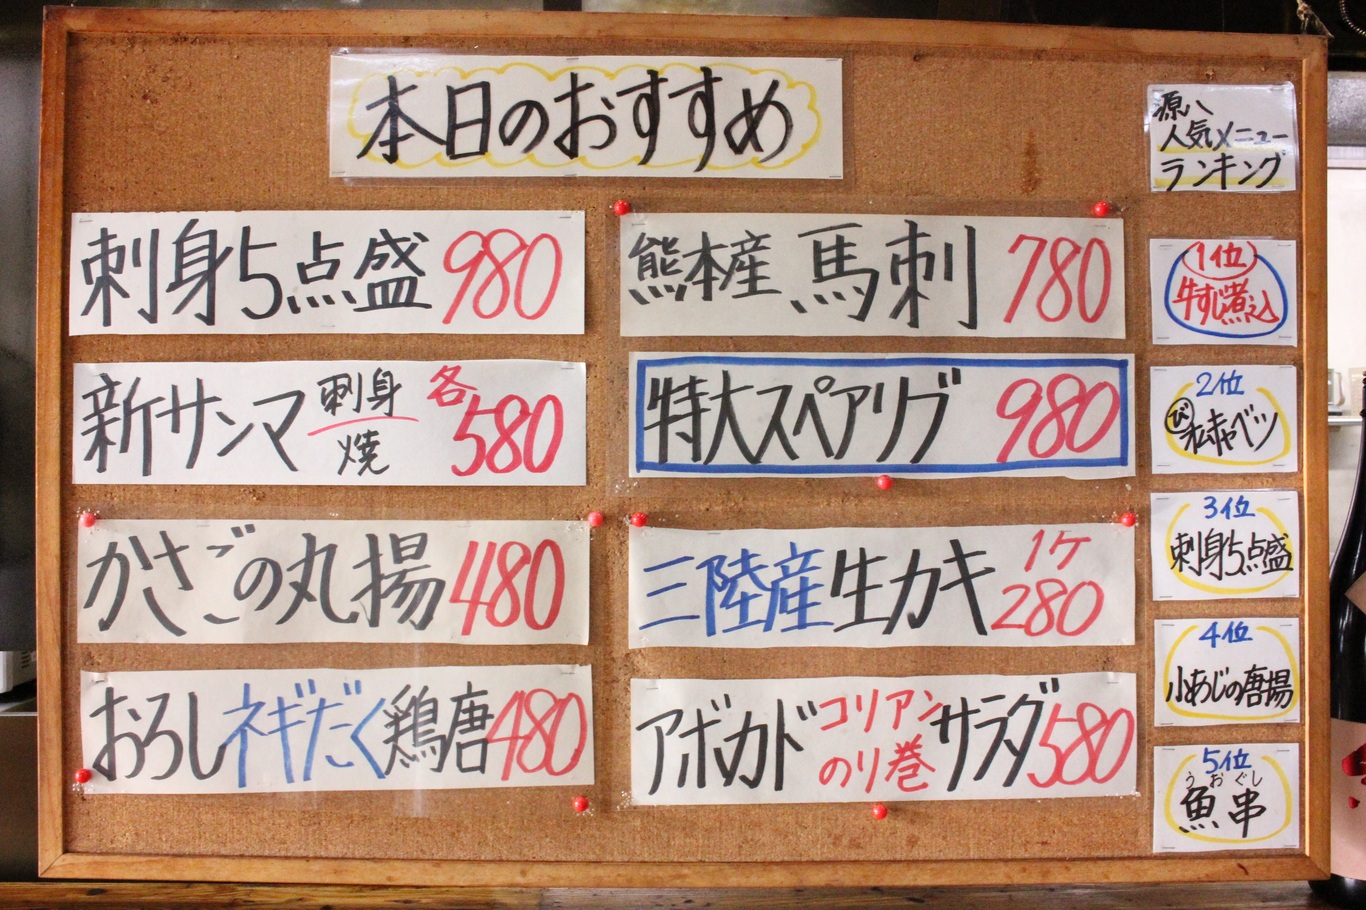 本日のおすすめ
刺身5点盛 980
新サンマ 刺身 焼 各580
かさごの丸揚 480
おろしネギだく鶏唐 480
熊本産 馬刺 780
特大スペアリブ 980
三陸産生カキ 1ケ 280
アボカドコリアンのり巻サラダ 580
源八
人気メニュー
ランキング
1位
牛すじ煮込
2位
び 私キャベツ
3位
刺身5点盛
4位
小あじの唐揚
5位
うおぐし
魚串